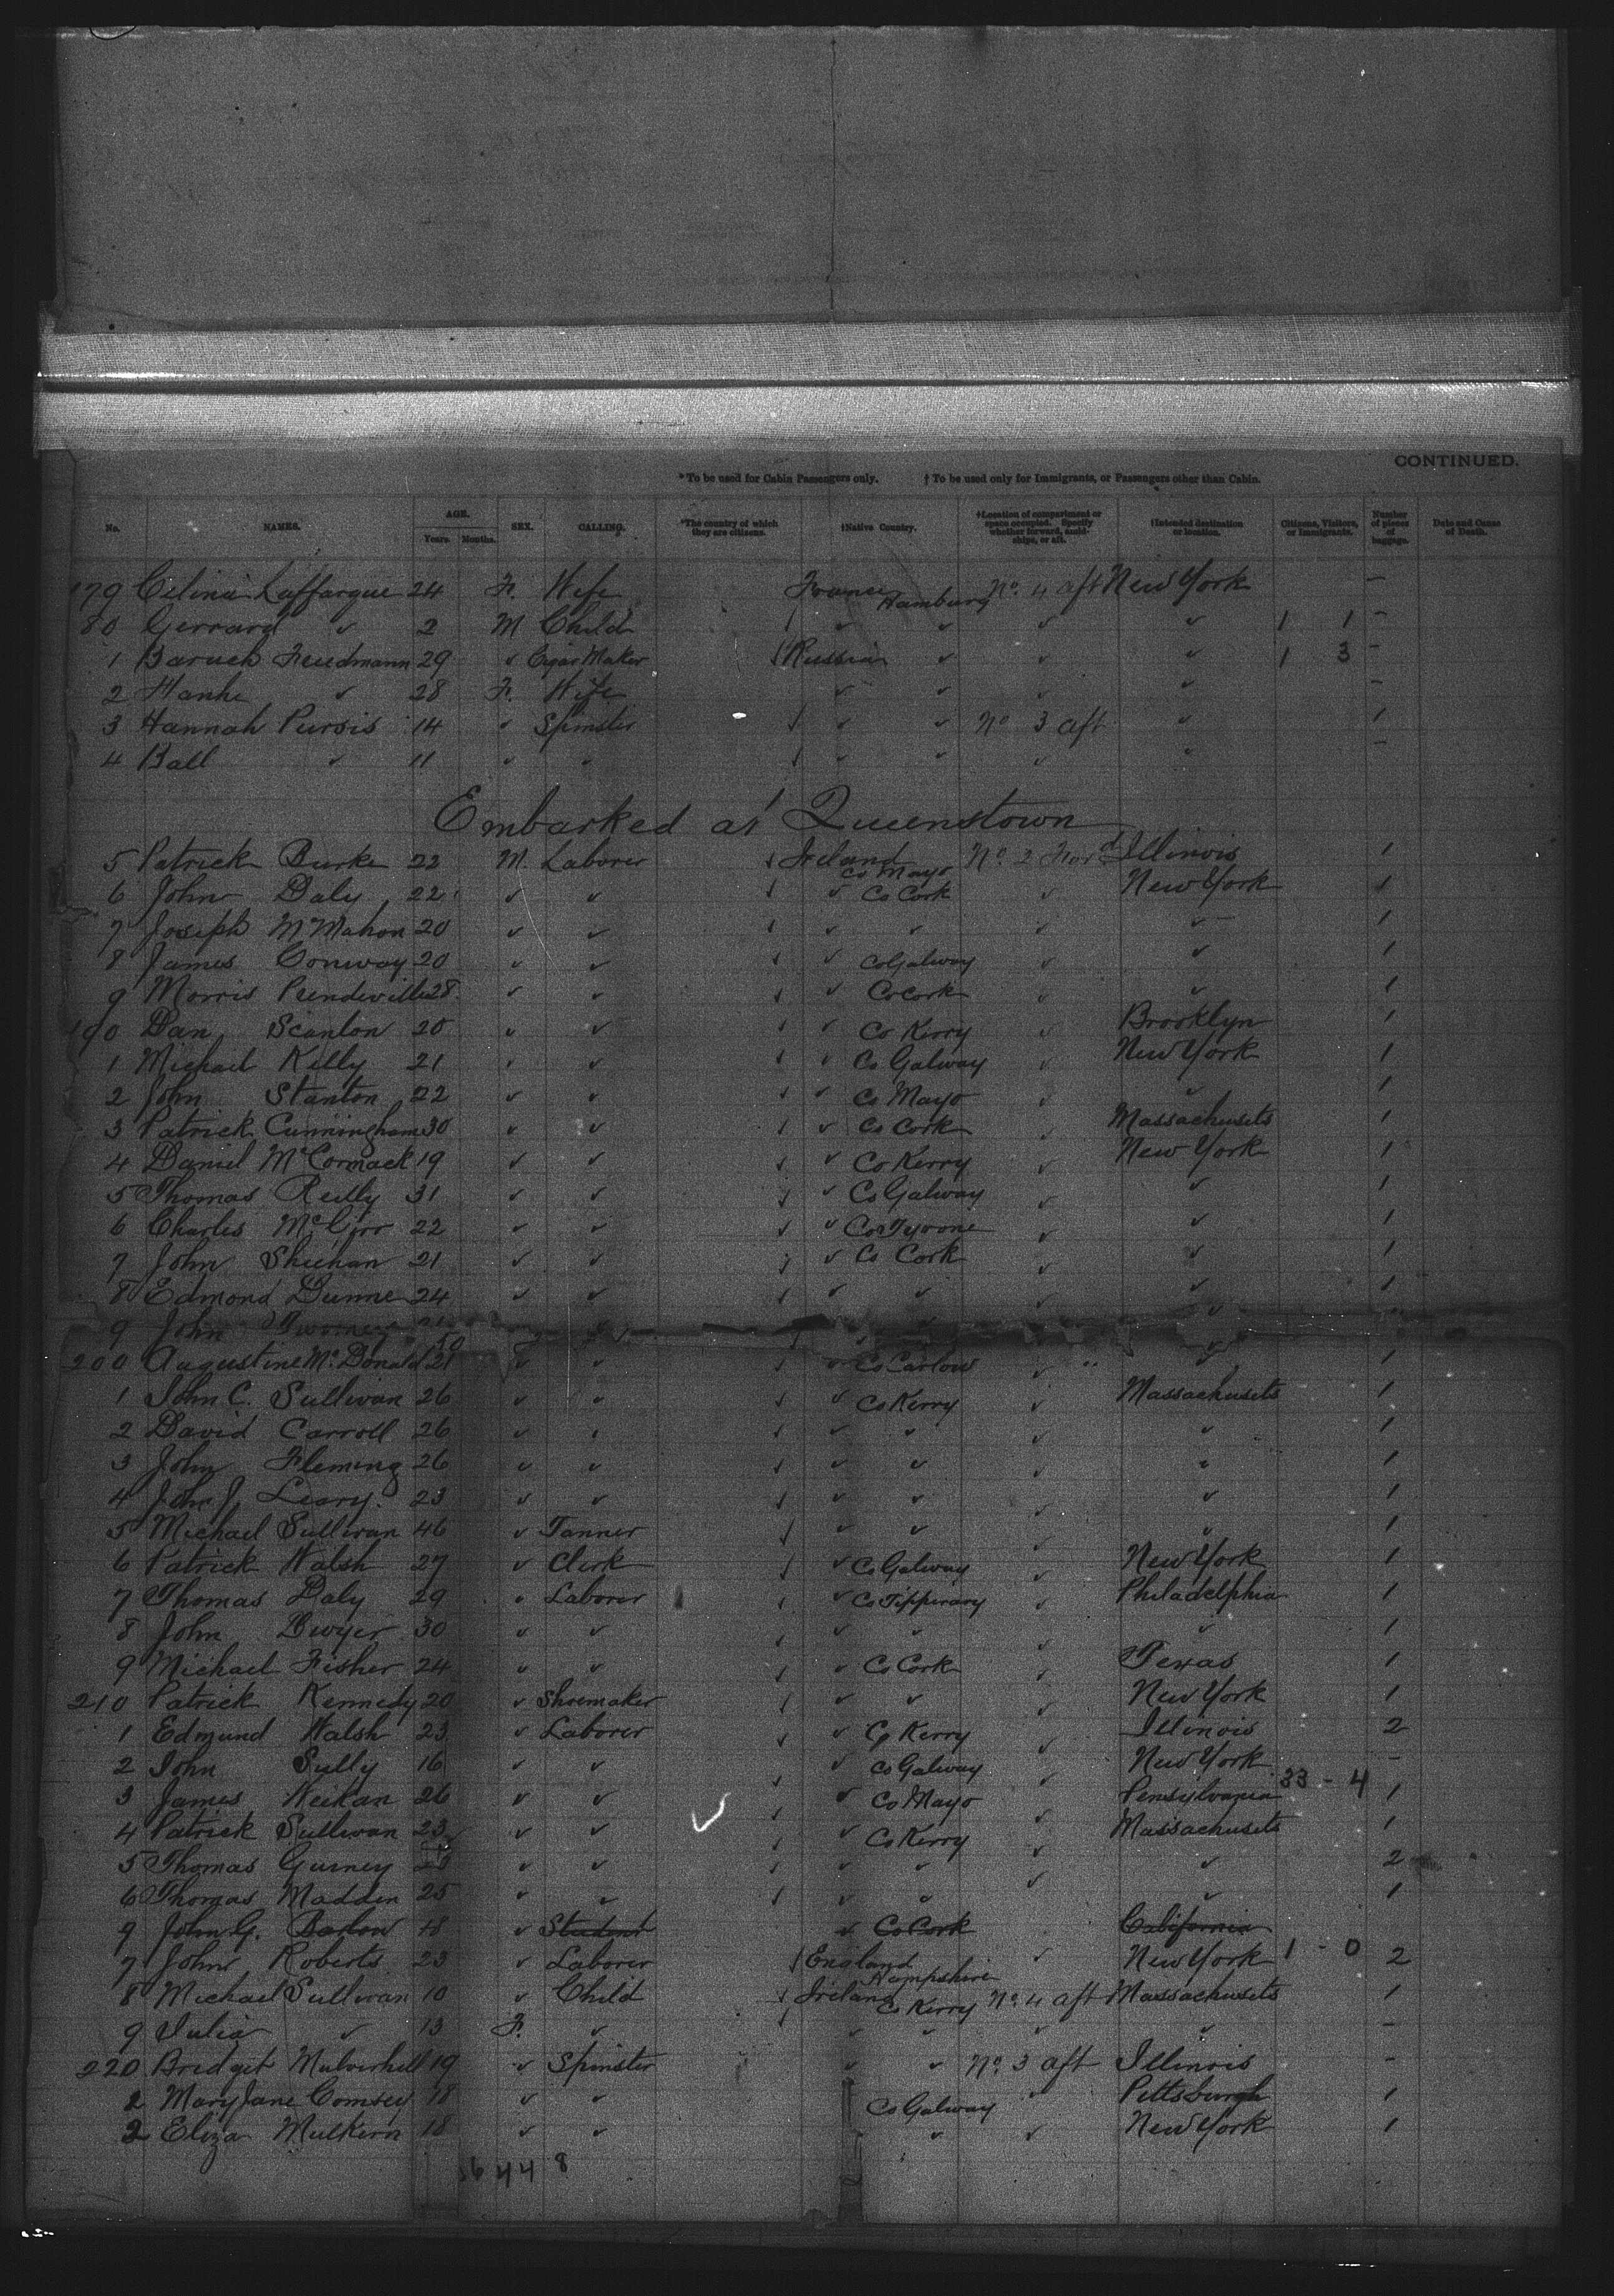 CONTINUED.
* To be used for Cabin Passengers only. † To be used only for Immigrants, or Passengers other than Cabin.
No. NAMES. AGE. Years. Months. SEX. CALLING. *The country of which they are citizens. †Native Country. †Location of compartment or space occupied. Specify whether forward, amidships, or aft. †Intended destination or location. Citizens, Visitors, or Immigrants. Number of pieces of baggage. Date and Cause of Death.
179 Celina Laffargue 24 F. Wife France Hamburg No. 4 aft New York –
80 Gerrard ✓ 2 M Child ✓ ✓ ✓ ✓ 1 1 –
1 Baruch Freudmann 29 ✓ Cigar Maker Russian ✓ ✓ ✓ 1 3 –
2 Hanhe ✓ 28 F. Wife ✓ ✓ ✓ ✓ –
3 Hannah Pursis 14 ✓ Spinster ✓ ✓ No 3 aft ✓ 1
4 Ball ✓ 11 ✓ ✓ ✓ ✓ ✓ ✓ –
Embarked at Queenstown
5 Patrick Burke 22 M. Laborer Ireland Co Mayo No. 2 Forwd Illinois 1
6 John Daly 22 ✓ ✓ ✓ Co Cork ✓ New York 1
7 Joseph McMahon 20 ✓ ✓ ✓ ✓ ✓ ✓ 1
8 James Conway 20 ✓ ✓ ✓ Co Galway ✓ ✓ 1
9 Morris Prendeville 28 ✓ ✓ ✓ Co Cork ✓ ✓ 1
190 Dan Scanlon 20 ✓ ✓ ✓ Co Kerry ✓ Brooklyn 1
1 Michael Kelly 21 ✓ ✓ ✓ Co Galway ✓ New York 1
2 John Stanton 22 ✓ ✓ ✓ Co Mayo ✓ ✓ 1
3 Patrick Cunningham 30 ✓ ✓ ✓ Co Cork ✓ Massachusets 1
4 Daniel McCormack 19 ✓ ✓ ✓ Co Kerry ✓ New York 1
5 Thomas Reilly 31 ✓ ✓ ✓ Co Galway ✓ ✓ 1
6 Charles McGirr 22 ✓ ✓ ✓ Co Tyrone ✓ ✓ 1
7 John Sheehan 21 ✓ ✓ ✓ Co Cork ✓ ✓ 1
8 Edmond Dunne 24 ✓ ✓ ✓ ✓ ✓ ✓ 1
9 John Twomey
200 Augustine McDonald 21 ✓ ✓ ✓ Co Carlow ✓ ✓ 1
1 John C. Sullivan 26 ✓ ✓ ✓ Co Kerry ✓ Massachusets 1
2 David Carroll 26 ✓ ✓ ✓ ✓ ✓ ✓ 1
3 John Fleming 26 ✓ ✓ ✓ ✓ ✓ ✓ 1
4 John J. Leary. 23 ✓ ✓ ✓ ✓ ✓ ✓ 1
5 Michael Sullivan 46 ✓ Tanner ✓ ✓ ✓ ✓ 1
6 Patrick Walsh 27 ✓ Clerk ✓ Co Galway ✓ New York 1
7 Thomas Daly 29 ✓ Laborer ✓ Co Tipperary ✓ Philadelphia 1
8 John Dwyer 30 ✓ ✓ ✓ ✓ ✓ ✓ 1
9 Michael Fisher 24 ✓ ✓ ✓ Co Cork ✓ Texas 1
210 Patrick Kennedy 20 ✓ Shoemaker ✓ ✓ ✓ New York 1
1 Edmund Walsh 23 ✓ Laborer ✓ Co Kerry ✓ Illinois 2
2 John Sully 16 ✓ ✓ ✓ Co Galway ✓ New York –
3 James 26 ✓ ✓ ✓ Co Mayo ✓ Pensylvania 33 - 4 1
4 Patrick Sullivan 23 ✓ ✓ ✓ Co Kerry ✓ Massachusets 1
5 Thomas Gurney ✓ ✓ ✓ ✓ ✓ ✓ 2
6 Thomas Madden 25 ✓ ✓ ✓ ✓ ✓ 1
9 John G. Barlow 18 ✓ Student ✓ Co Cork California
7 John Roberts 23 ✓ Laborer England Hampshire ✓ New York 1 - 0 2
8 Michael Sullivan 10 ✓ Child Ireland Co Kerry No. 4 aft Massachusets 1
9 Julia ✓ 13 F. ✓ ✓ ✓ ✓ ✓ –
220 Bridget Mulverhill 19 ✓ Spinster ✓ ✓ No. 3 aft Illinois –
2 Mary Jane Comsey 18 ✓ ✓ Co Galway ✓ Pittsburgh 1
2 Eliza Mulkern 18 ✓ ✓ ✓ ✓ New York 1
44 8